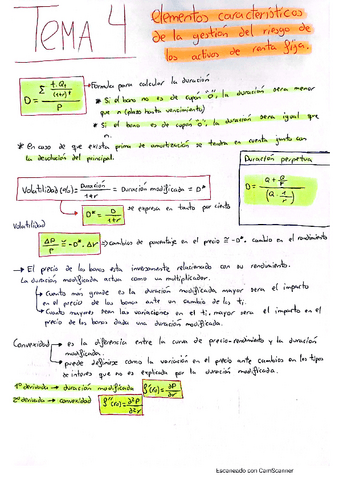 TEMA 4
elementos característicos
de la gestión del riesgo de
los activos de renta fija.
D = Σ t·Q₁/(1+r)ᵗ / P
→ Fórmula para calcular la duración
* Si el bono no es de cupón "0", la duración será menor
que n (plazo hasta vencimiento)
* Si el bono es de cupón "0", la duración será igual que
n.
* En caso de que exista prima de amortización se tendrá en cuenta junto con
la devolución del principal.
Duración perpetua
Volatilidad (%) = Duración/1+r = Duración modificada = D*
D* = D/1+r se expresa en tanto por ciento
Volatilidad
ΔP/P ≅ -D*·Δr → cambios de porcentaje en el precio ≅ -D*. cambio en el rendimiento
→ El precio de los bonos esta inversamente relacionado con su rendimiento.
La duración modificada actua como un multiplicador.
→ Cuanto más grande es la duración modificada mayor será el impacto
en el precio de los bonos ante un cambio de los ti.
→ Cuanto mayores sean las variaciones en el ti, mayor sera el impacto en el
precio de los bonos dada una duración modificada.
Convexidad → es la diferencia entre la curva de precio-rendimiento y la duración
modificada.
→ puede definirse como la variación en el precio ante cambios en los tipos
de interes que no es explicada por la duración modificada.
1ª derivada → duración modificada f'(r₀) = ∂P/∂r
2ª derivada → convexidad f''(r₀) = ∂²P/∂²r
Escaneado con CamScanner